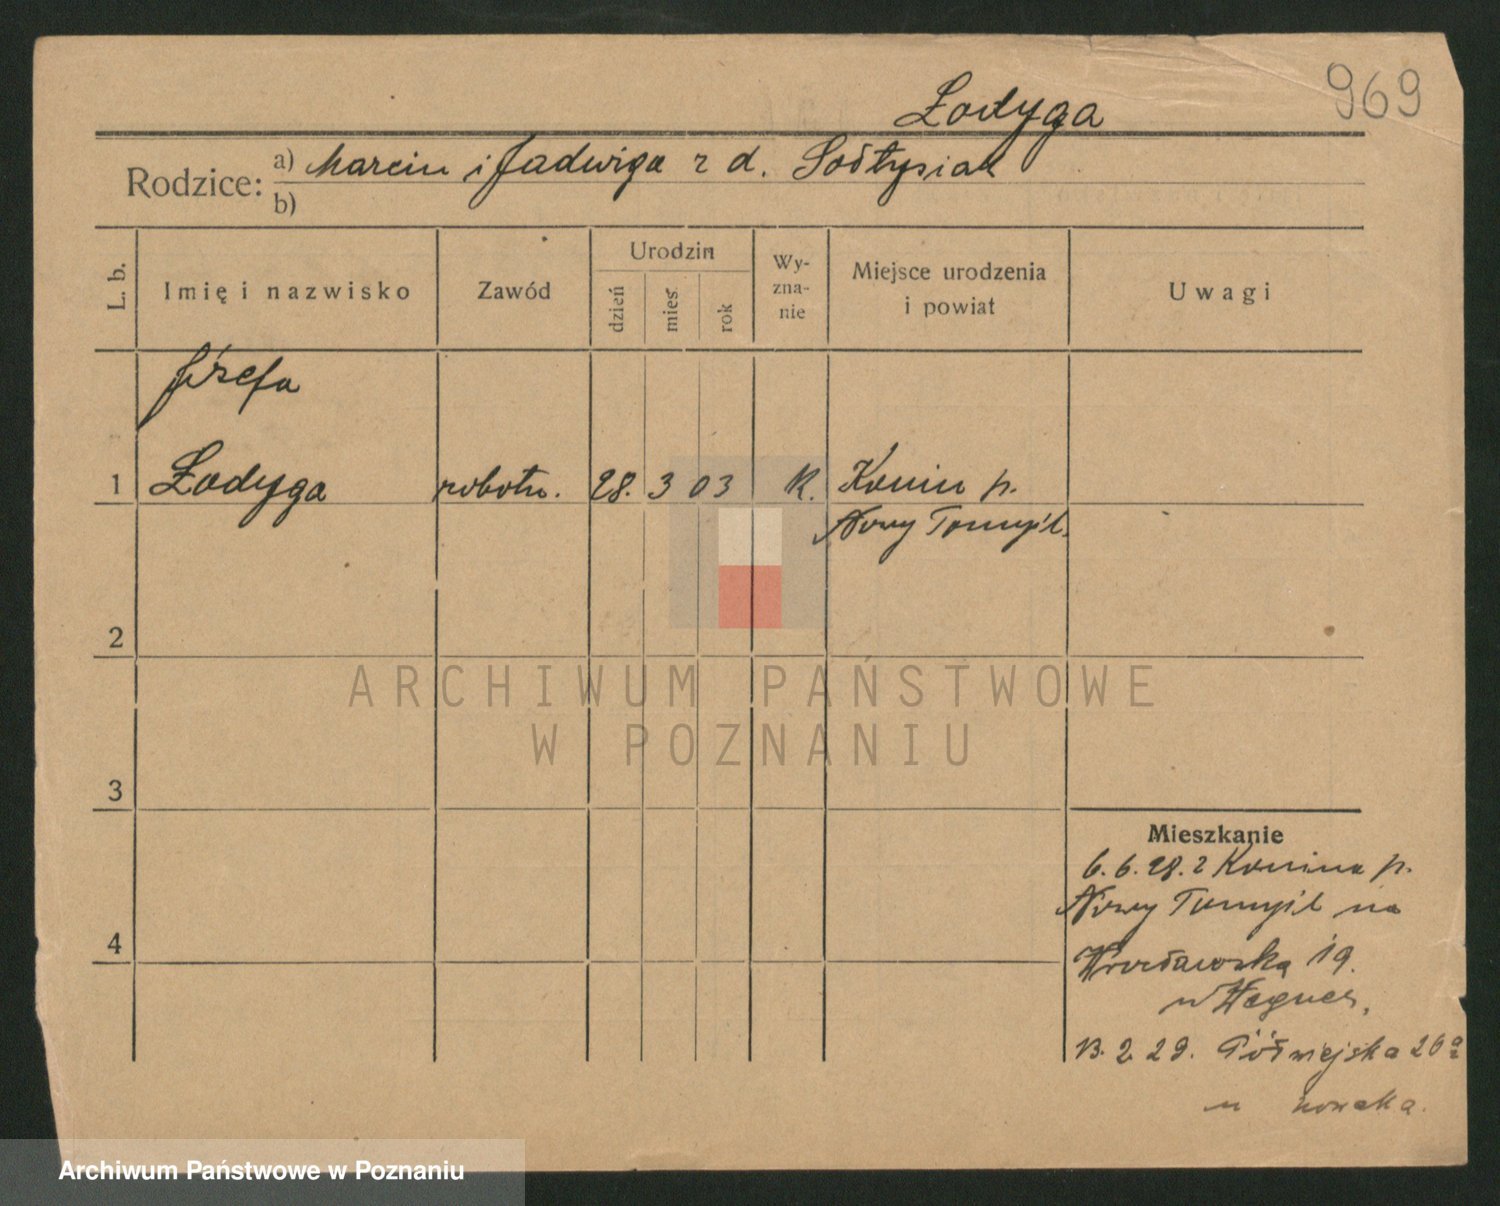 969
Łodyga
Rodzice: a) Marcin i Jadwiga z d. Sołtysiak
b)
L. b.
Imię i nazwisko
Zawód
Urodzin
dzień
mies.
rok
Wy-
zna-
nie
Miejsce urodzenia
i powiat
Uwagi
Józefa
1 Łodyga robotn. 28. 3 03 k. Konin p.
Nowy Tomyśl.
2
3
4
Mieszkanie
6.6.28. z Konina p.
Nowy Tomyśl na
Wrocławską 19.
u Wegner,
13. 2. 29. Półwiejska 26a
u Nowaka.
ARCHIWUM PAŃSTWOWE
W POZNANIU
Archiwum Państwowe w Poznaniu